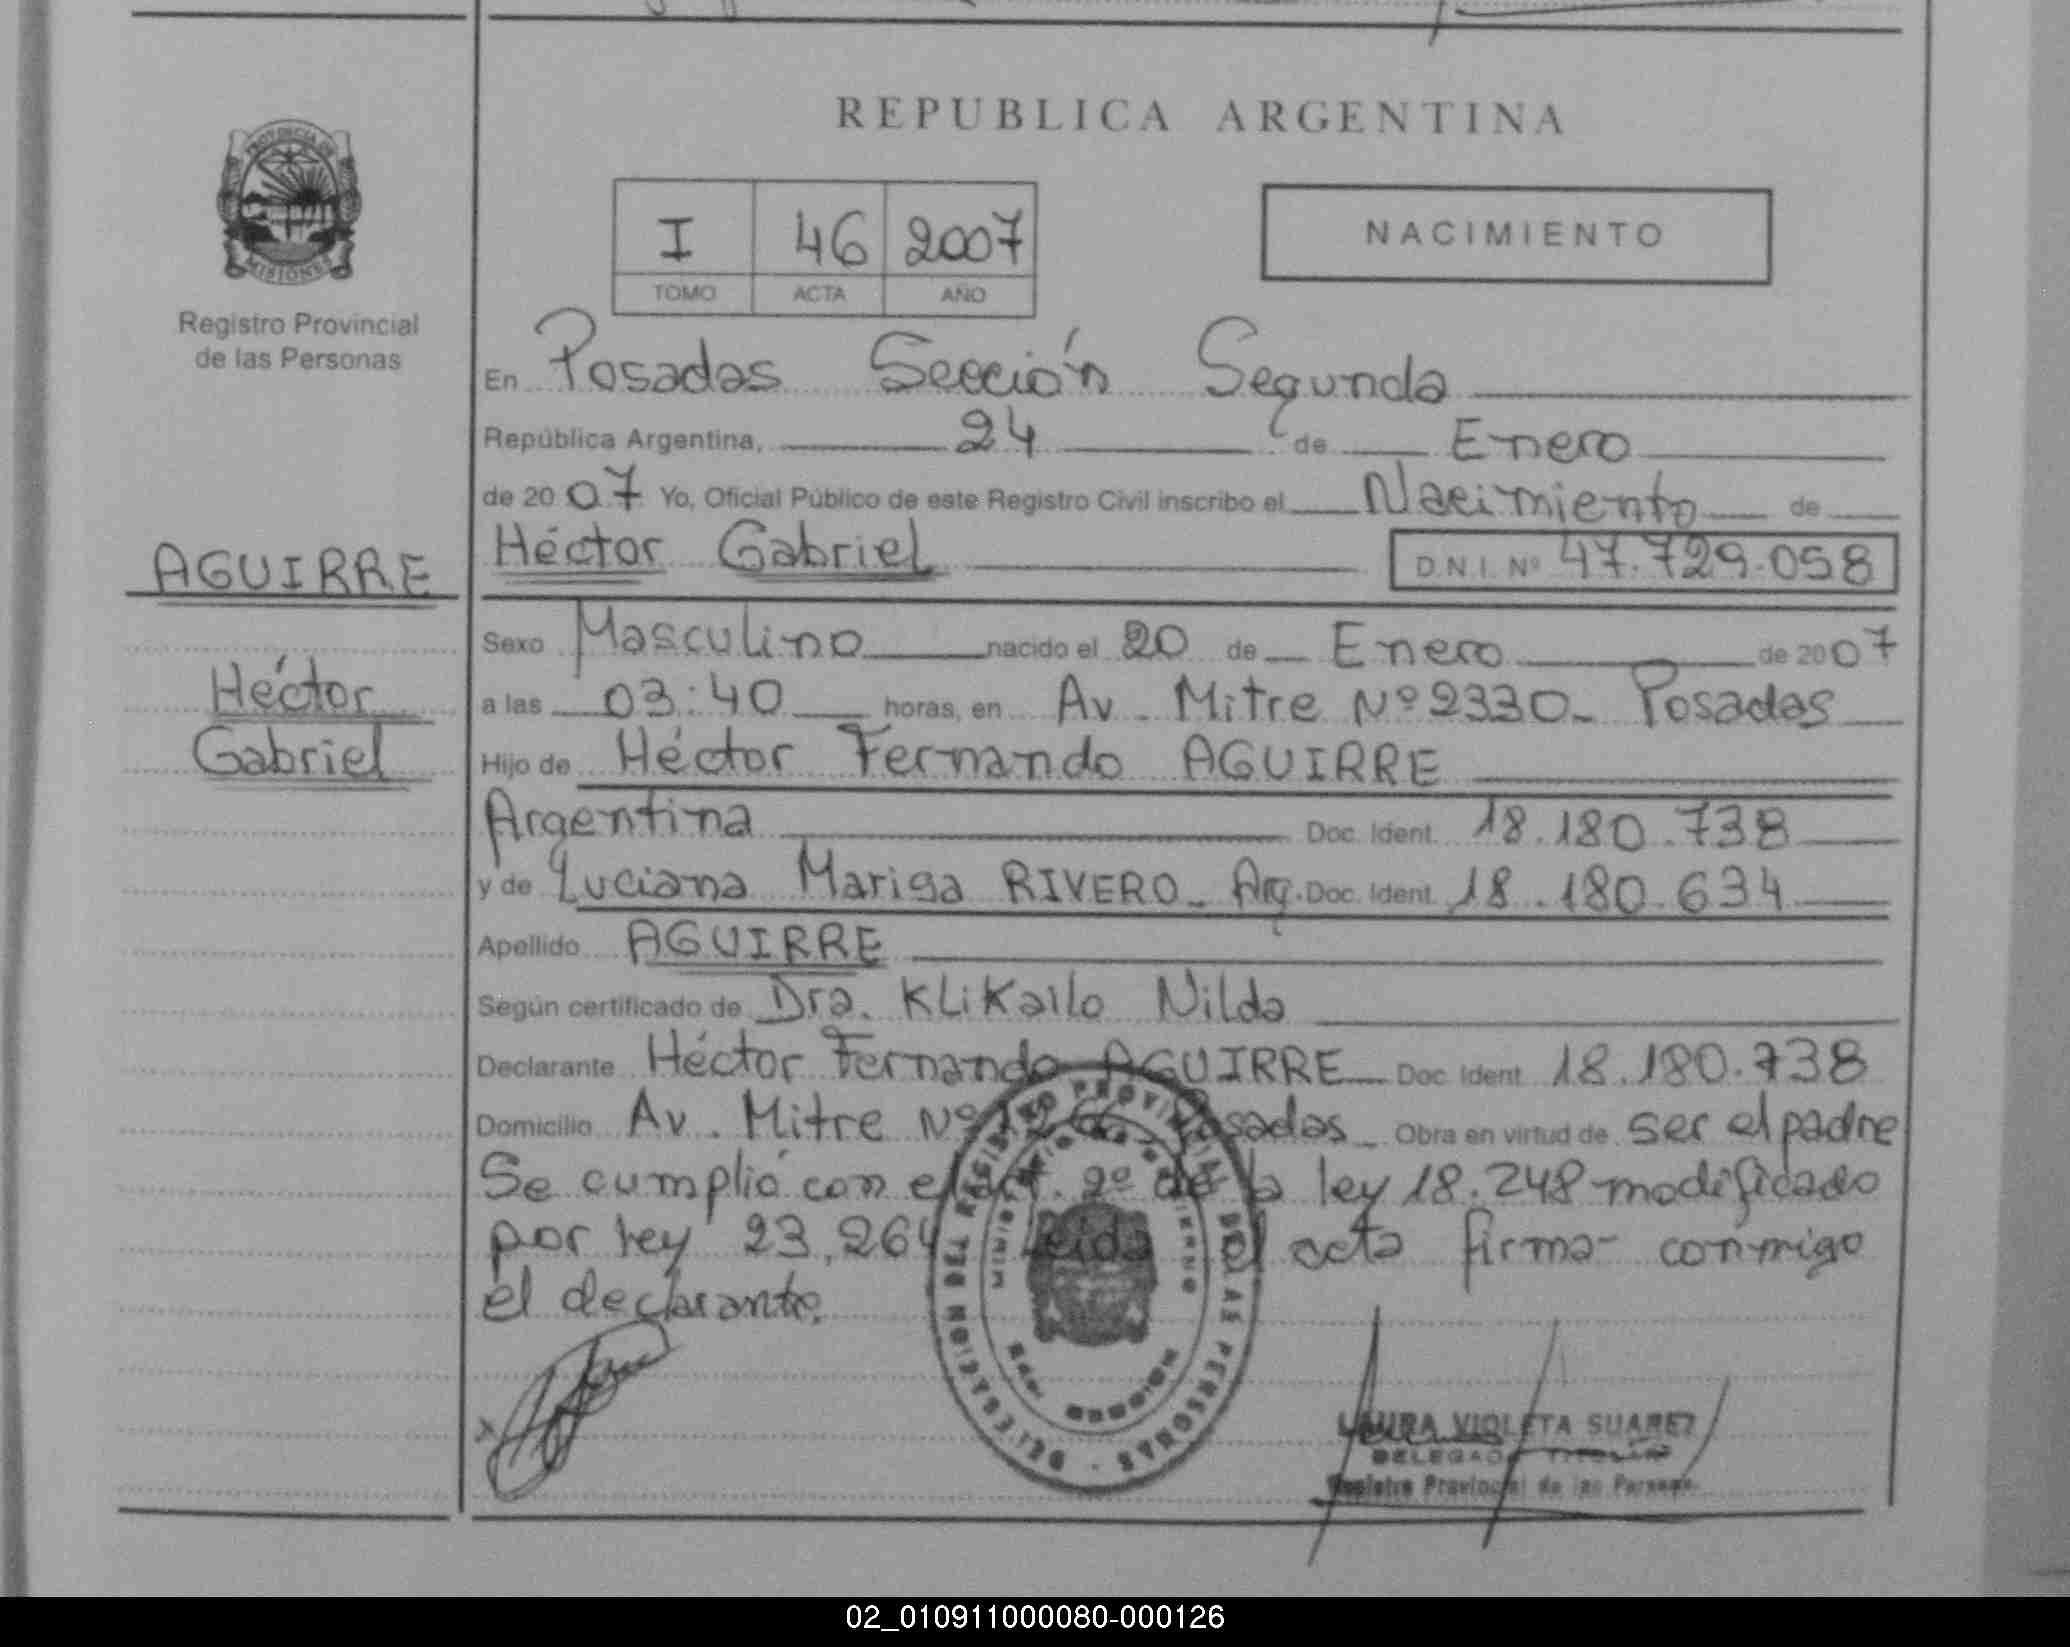 REPUBLICA ARGENTINA
PROVINCIA DE
MISIONES
Registro Provincial
de las Personas
I 46 2007
TOMO ACTA AÑO
NACIMIENTO
En Posadas Sección Segunda
República Argentina, 24 de Enero
de 2007 Yo, Oficial Público de este Registro Civil inscribo el Nacimiento de
AGUIRRE
Héctor
Gabriel
Héctor Gabriel D.N.I. Nº 47.729.058
Sexo Masculino nacido el 20 de Enero de 2007
a las 03:40 horas, en Av. Mitre Nº 2330- Posadas
Hijo de Héctor Fernando AGUIRRE
Argentina Doc. Ident. 18.180.738
y de Luciana Marisa RIVERO- Arg. Doc. Ident. 18.180.634
Apellido AGUIRRE
Según certificado de Dra. KLiKailo Nilda
Declarante Héctor Fernando AGUIRRE Doc. Ident. 18.180.738
Domicilio Av. Mitre Nº Posadas- Obra en virtud de ser el padre
Se cumplió con el art. 2º de la ley 18.248 modificado
por ley 23.264 Leída el acta firma- conmigo
el declarante.
DELEGACION DEL REGISTRO PROVINCIAL DE LAS PERSONAS
LAURA VIOLETA SUAREZ
DELEGADO TITULAR
Registro Provincial de las Personas
02_010911000080-000126